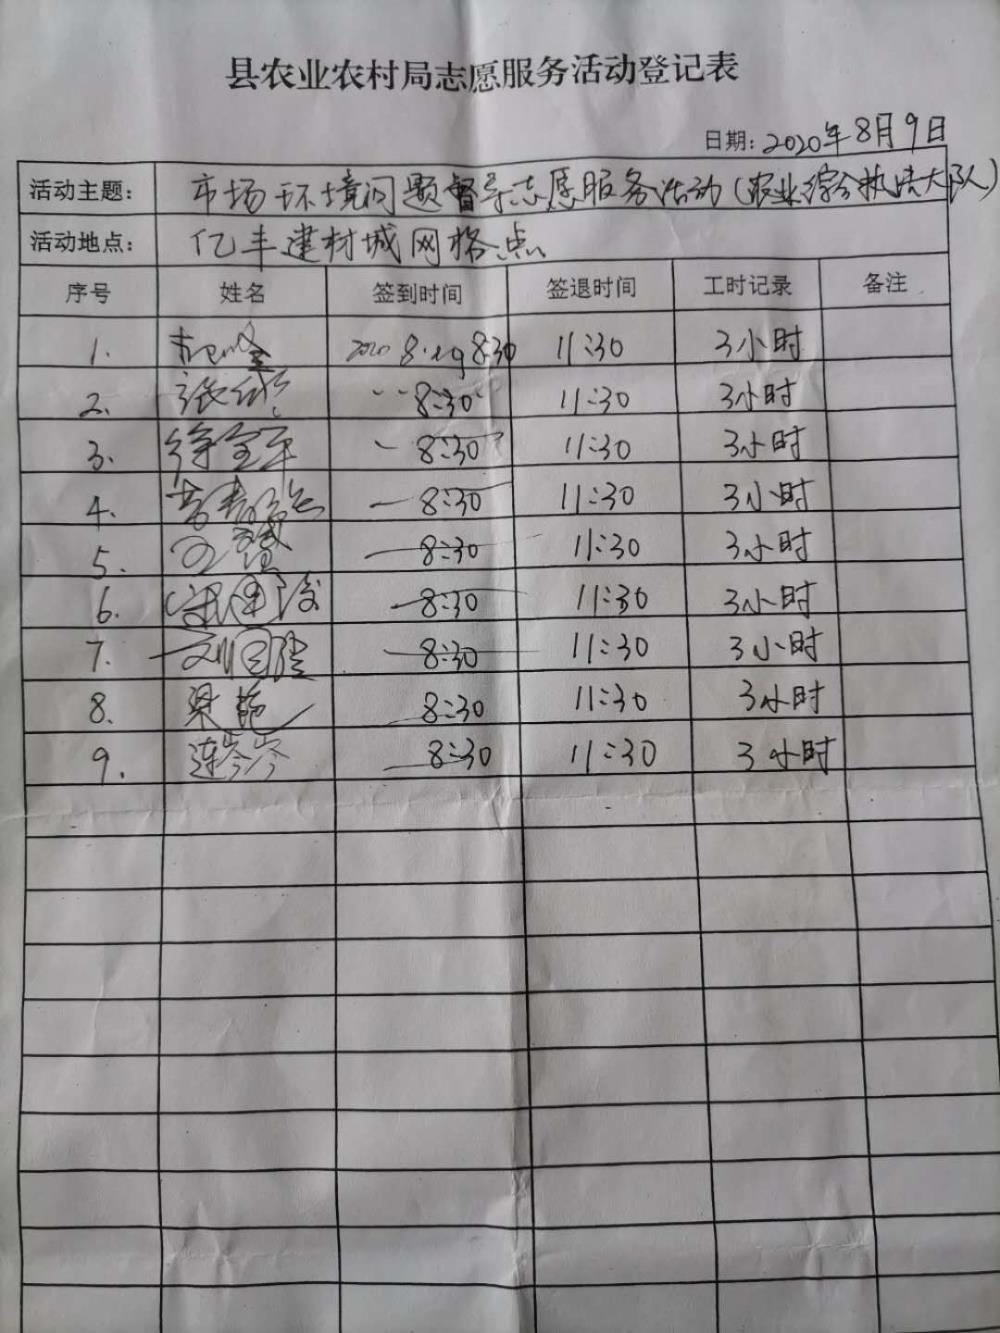 县农业农村局志愿服务活动登记表
日期: 2020年8月9日
活动主题: 市场环境问题督导志愿服务活动(农业综合执法大队)
活动地点: 亿丰建材城网格点
序号 姓名 签到时间 签退时间 工时记录 备注
1. 2020 8:30 11:30 3小时
2. 张 8:30 11:30 3小时
3. 徐金平 8:30 11:30 3小时
4. 8:30 11:30 3小时
5. 8:30 11:30 3小时
6. 8:30 11:30 3小时
7. 刘国胜 8:30 11:30 3小时
8. 梁艳 8:30 11:30 3小时
9. 连岑岑 8:30 11:30 3小时